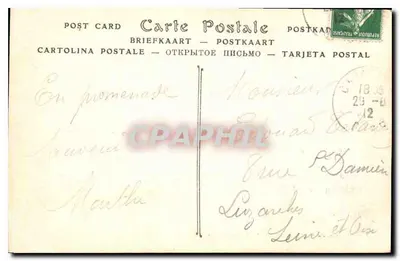 POST CARD Carte Postale POSTKAR
BRIEFKAART — POSTKAART
CARTOLINA POSTALE — ОТКРЫТОЕ ПИСЬМО — TARJETA POSTAL
En promenade
Marthe
Monsieur
Edouard
rue St Damien
Luzarches
Seine et Oise
18
29 -8
12
CPAPHIL.COM